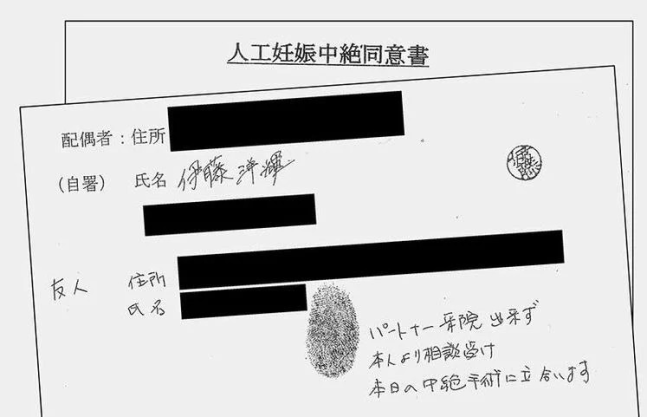 人工妊娠中絶同意書
配偶者：住所
（自署） 氏名 伊藤洋輝
友人 住所
氏名
パートナー来院出来ず
本人より相談受け
本日の中絶手術に立合います